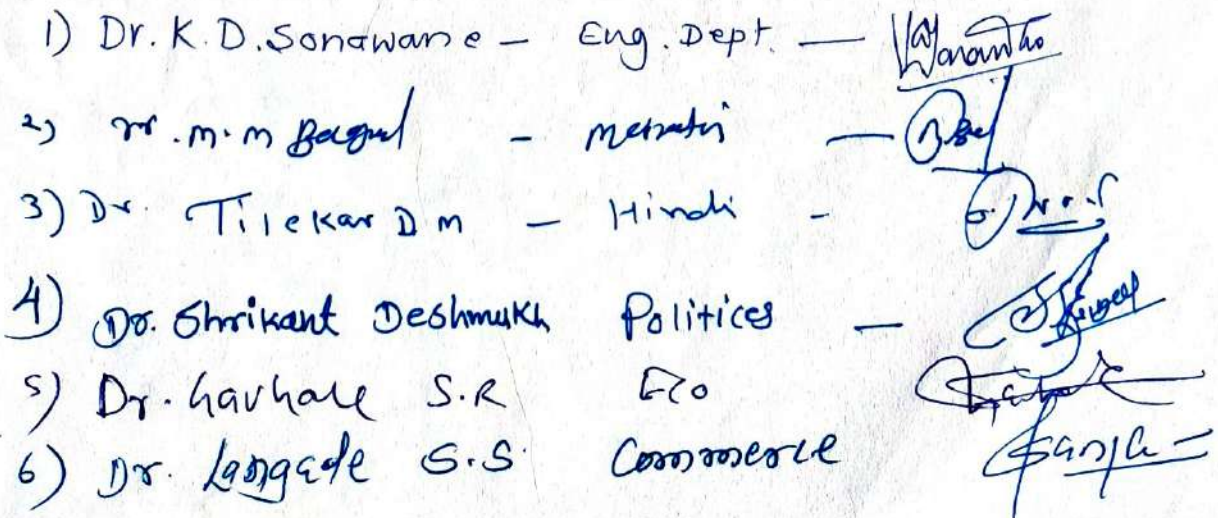 1) Dr. K. D. Sonawane - Eng. Dept. -
2) Dr. M. M Bagul - Marathi -
3) Dr. Tilekar D M - Hindi -
4) Dr. Shrikant Deshmukh Politices -
5) Dr. Gavhale S.R Eco
6) Dr. Langade S.S. Commerce